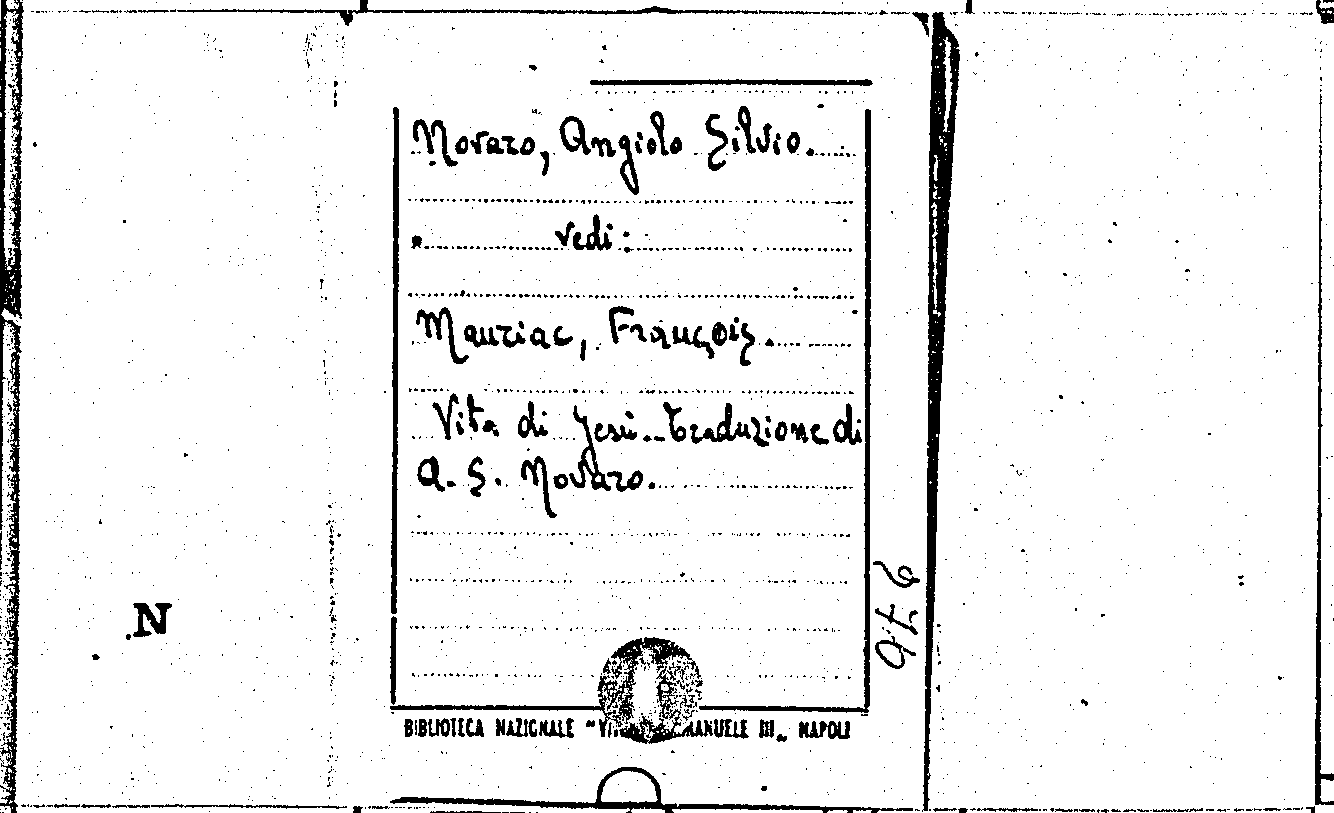 Novaro, Angiolo Silvio.
vedi:
Mauriac, François.
Vita di Jesù. Traduzione di
A. S. Novaro.
N
BIBLIOTECA NAZIONALE " MANUELE III„ NAPOLI